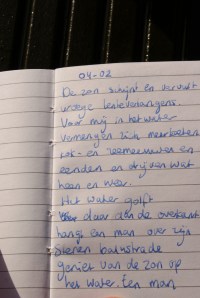 04-02
De zon schijnt en vervult
vroege lenteverlangens.
Voor mij in het water
vermengen zich meerkoeten
kok- en zeemeeuwen en
eenden en drijven wat
heen en weer.
Het water golft
daar aan de overkant
hangt een man over zijn
stenen balustrade
geniet van de zon op
het water. Een man